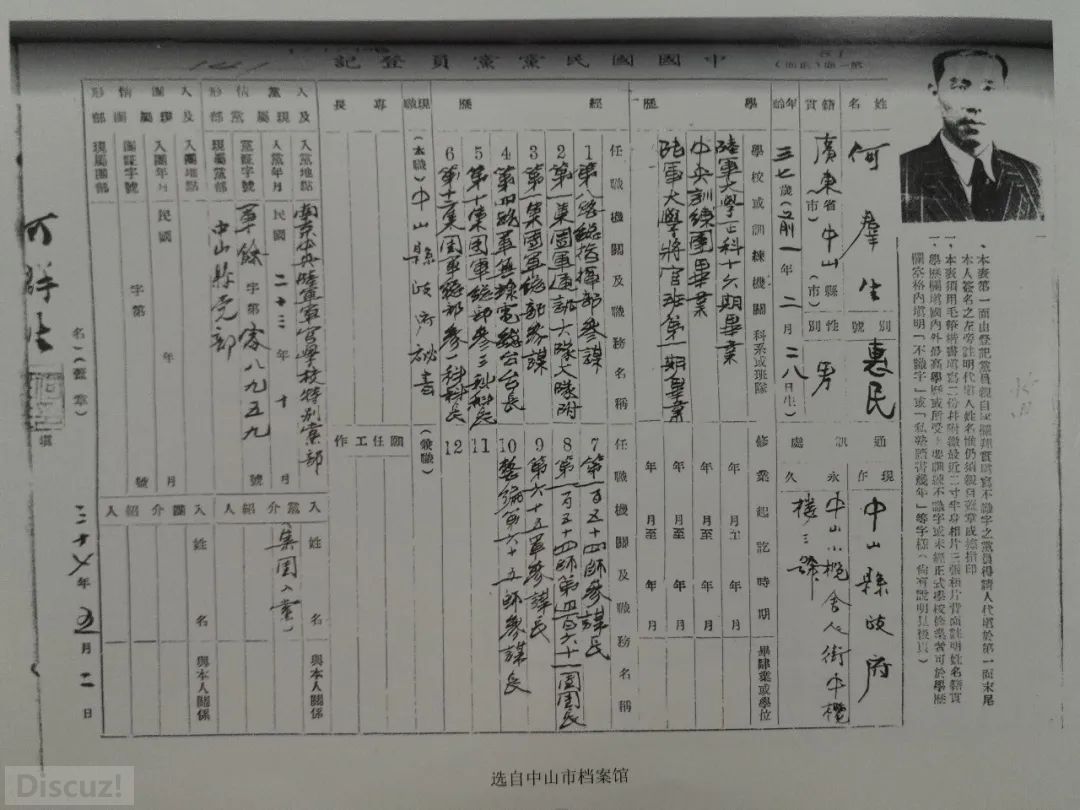 中國國民黨黨員登記
姓名
何群生
別號
惠民
籍貫
廣東省中山縣(市)
性別
男
年齡
三七歲(民前一年二月二八日生)
通訊處
現在
中山縣政府
永久
中山小欖舍人街中欖樓三號
學歷
學校或訓練機關
科系或班隊
修業起訖時期
畢肄業或學位
陸軍大學正科十六期畢業
中央訓練團畢業
陸軍大學將官班第一期畢業
年月至年月
年月至年月
年月至年月
年月至年月
經歷
任職機關及職務名稱
1 第八路總指揮部參謀
2 第一集團軍通訊大隊大隊附
3 第一集團軍總部參謀
4 第四路軍無線電總台台長
5 第十集團軍總部參三科科長
6 第十二集團軍總部參一科科長
任職機關及職務名稱
7 第一百五十四師參謀長
8 第一百五十四師第四百六十一團團長
9 第六十五軍參謀長
10 整編第六十五師參謀長
11
12
現職
(本職)中山縣政府祕書
(兼職)
專長
願任工作
入黨及現屬黨部情形
入黨地點
南京中央陸軍軍官學校特別黨部
入黨年月
民國二十三年十月
黨証字號
軍餘字第客八九五九號
現屬黨部
中山縣党部
入黨介紹人
姓名
與本人關係
(集團入黨)
入團及現屬團部情形
入團地點
入團年月
民國年月
團証字號
字第號
現屬團部
入團介紹人
姓名
與本人關係
何群生
名(蓋章)
填
三十年五月二日
本表第一面由登記黨員親自
本表須用毛筆楷書填寫二份并附繳最近二寸半身相片三張相片背面註明姓名籍貫
選自中山市档案馆
Discuz!